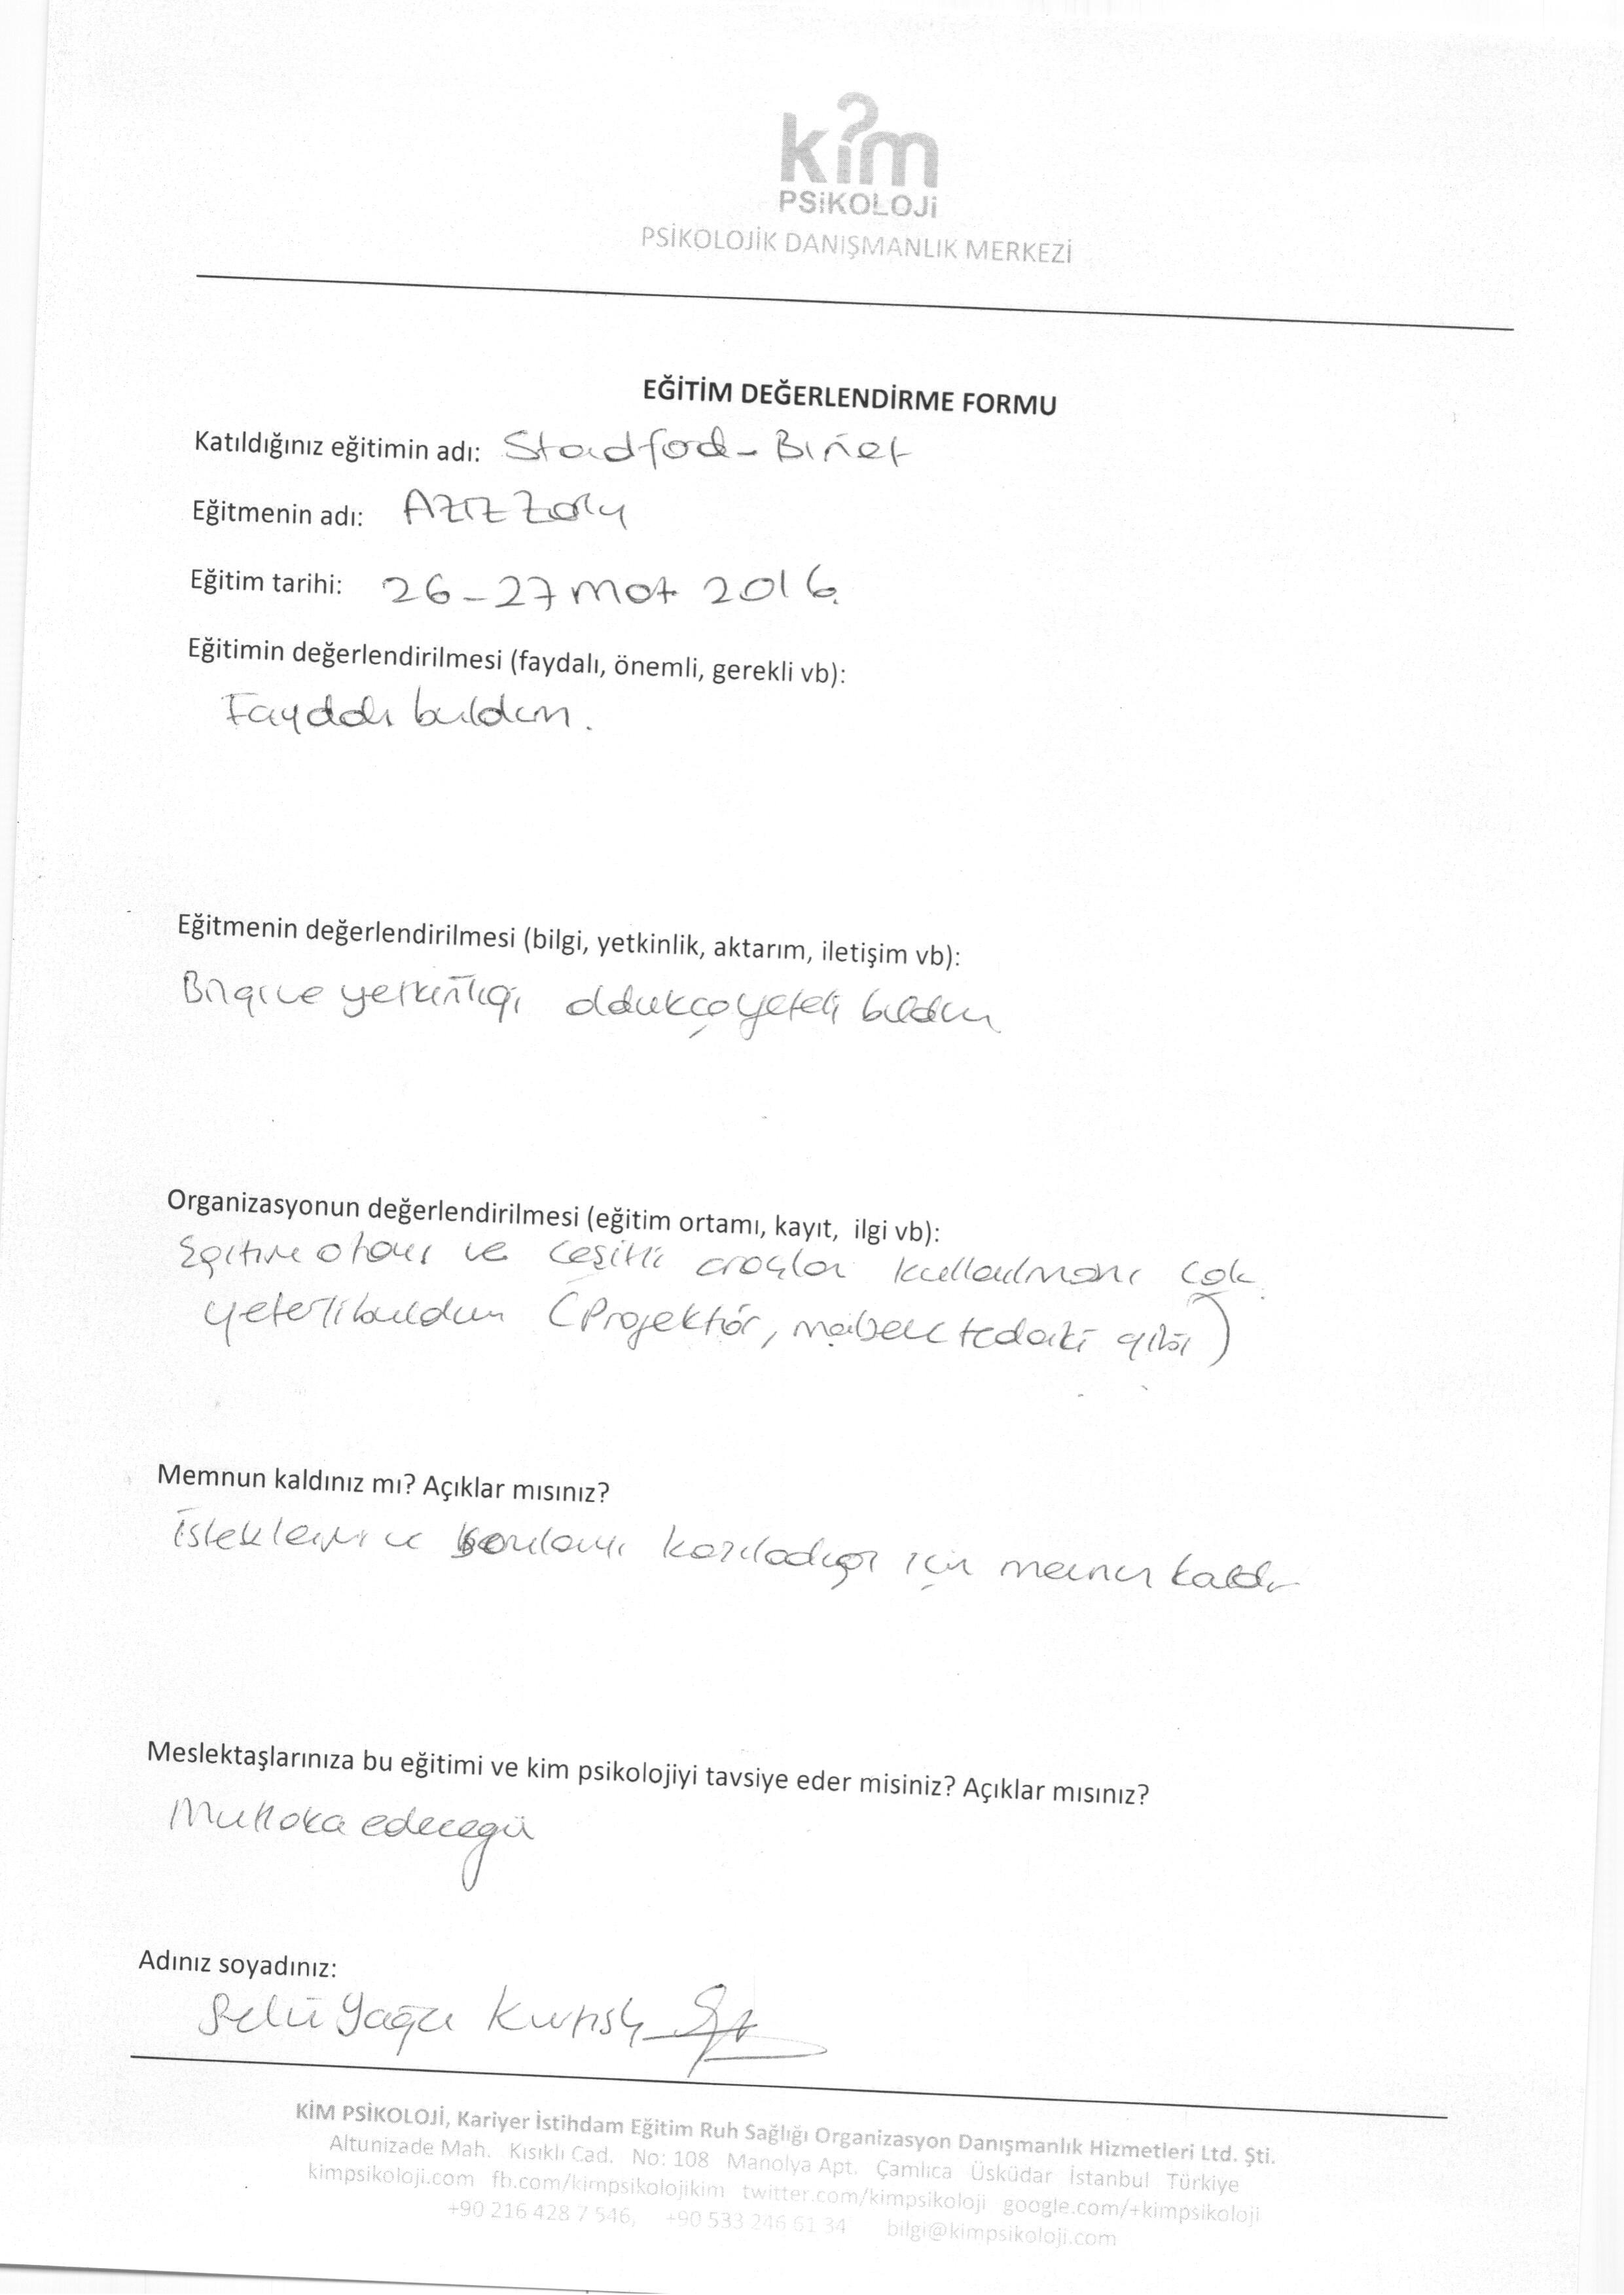 kim
PSİKOLOJİ
PSİKOLOJİK DANIŞMANLIK MERKEZİ
EĞİTİM DEĞERLENDİRME FORMU
Katıldığınız eğitimin adı: Stadford-Binet
Eğitmenin adı: Aziz Zorlu
Eğitim tarihi: 26-27 Mart 2016.
Eğitimin değerlendirilmesi (faydalı, önemli, gerekli vb):
Faydalı buldum.
Eğitmenin değerlendirilmesi (bilgi, yetkinlik, aktarım, iletişim vb):
Bilgi ve yetkinliği oldukça yeterli buldum
Organizasyonun değerlendirilmesi (eğitim ortamı, kayıt, ilgi vb):
Eğitim ve çeşitli araçlar kullanılmasını çok
yeterli buldum (Projektör, gibi)
Memnun kaldınız mı? Açıklar mısınız?
karşıladığı için memnun kaldım
Meslektaşlarınıza bu eğitimi ve kim psikolojiyi tavsiye eder misiniz? Açıklar mısınız?
Mutlaka edeceğim
Adınız soyadınız:
KİM PSİKOLOJİ, Kariyer İstihdam Eğitim Ruh Sağlığı Organizasyon Danışmanlık Hizmetleri Ltd. Şti.
Altunizade Mah. Kısıklı Cad. No: 108 Manolya Apt. Çamlıca Üsküdar İstanbul Türkiye
kimpsikoloji.com fb.com/kimpsikolojikim twitter.com/kimpsikoloji google.com/+kimpsikoloji
+90 216 428 7 546, +90 533 246 61 34 bilgi@kimpsikoloji.com